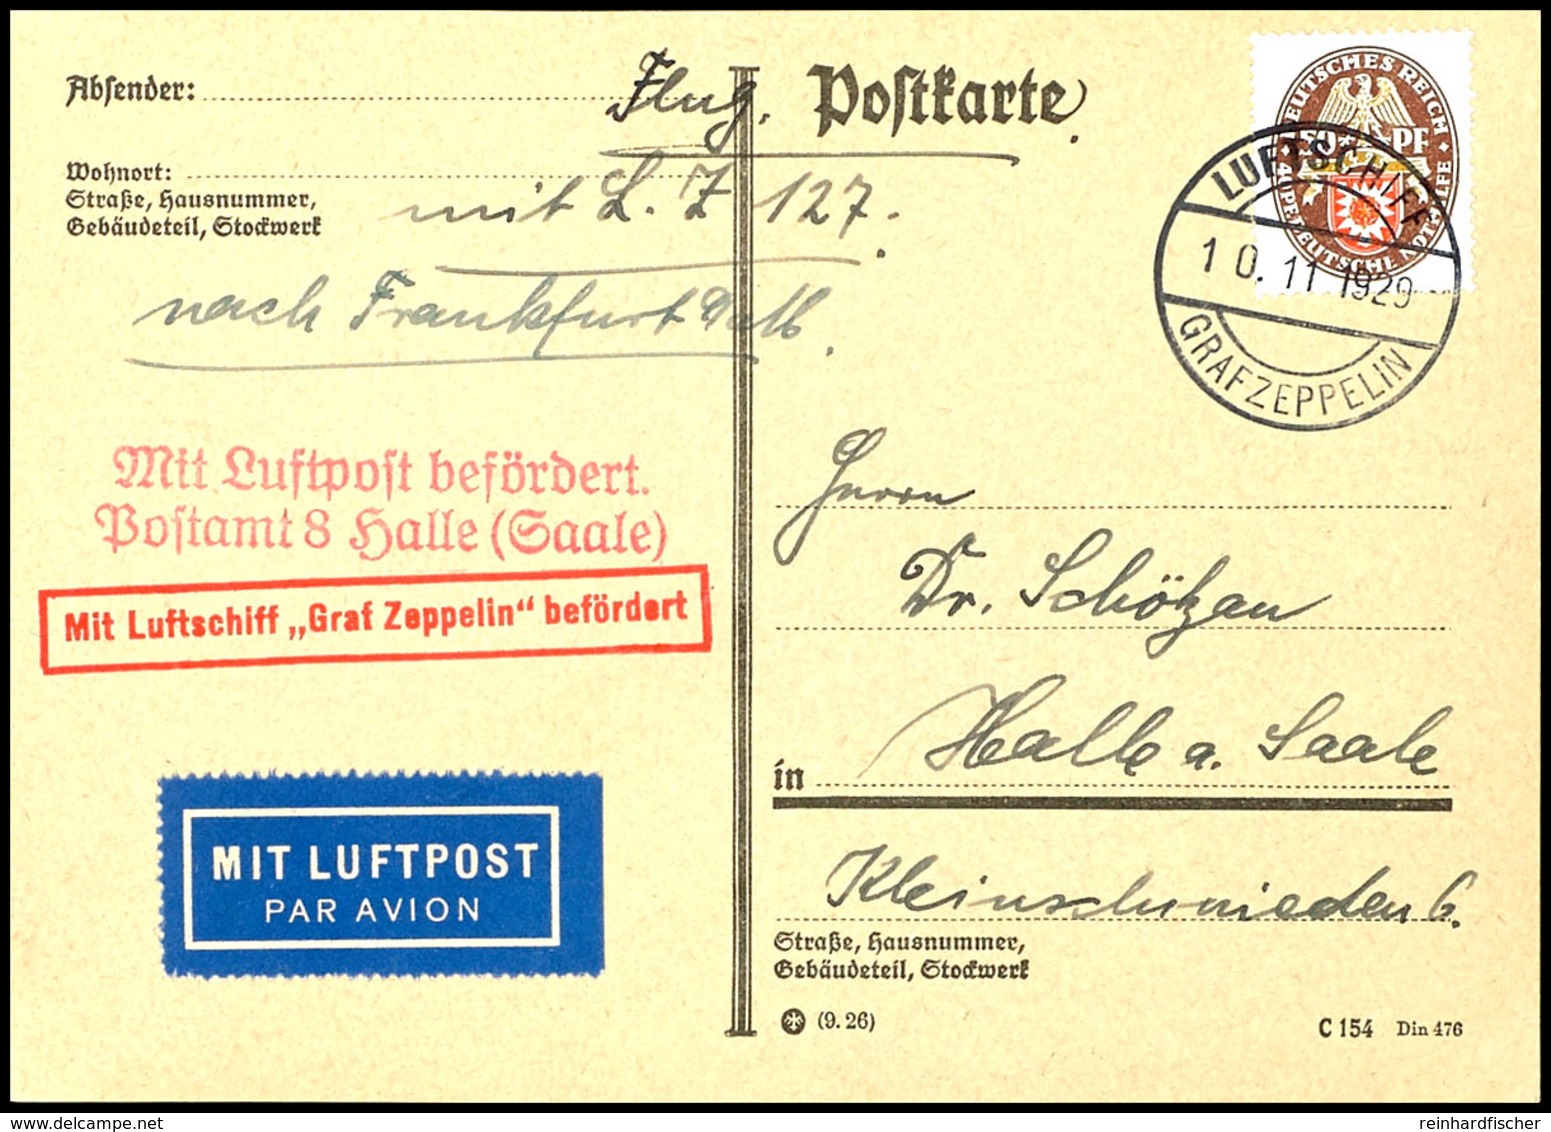 Absender:
Flug.
Postkarte
Wohnort:
Straße, Hausnummer,
Gebäudeteil, Stockwerk
mit L. Z 127.
nach Frankfurt
DEUTSCHES REICH
50 PF
DEUTSCHE NOTHILFE
LUFTSCHIFF
10.11 1929
GRAF ZEPPELIN
Mit Luftpost befördert.
Postamt 8 Halle (Saale)
Mit Luftschiff „Graf Zeppelin“ befördert
Herrn
Dr. Schötzau
in Halle a. Saale
MIT LUFTPOST
PAR AVION
Kleinschmieden 6.
Straße, Hausnummer,
Gebäudeteil, Stockwerk
(9. 26)
C 154 Din 476
reinhardfischer